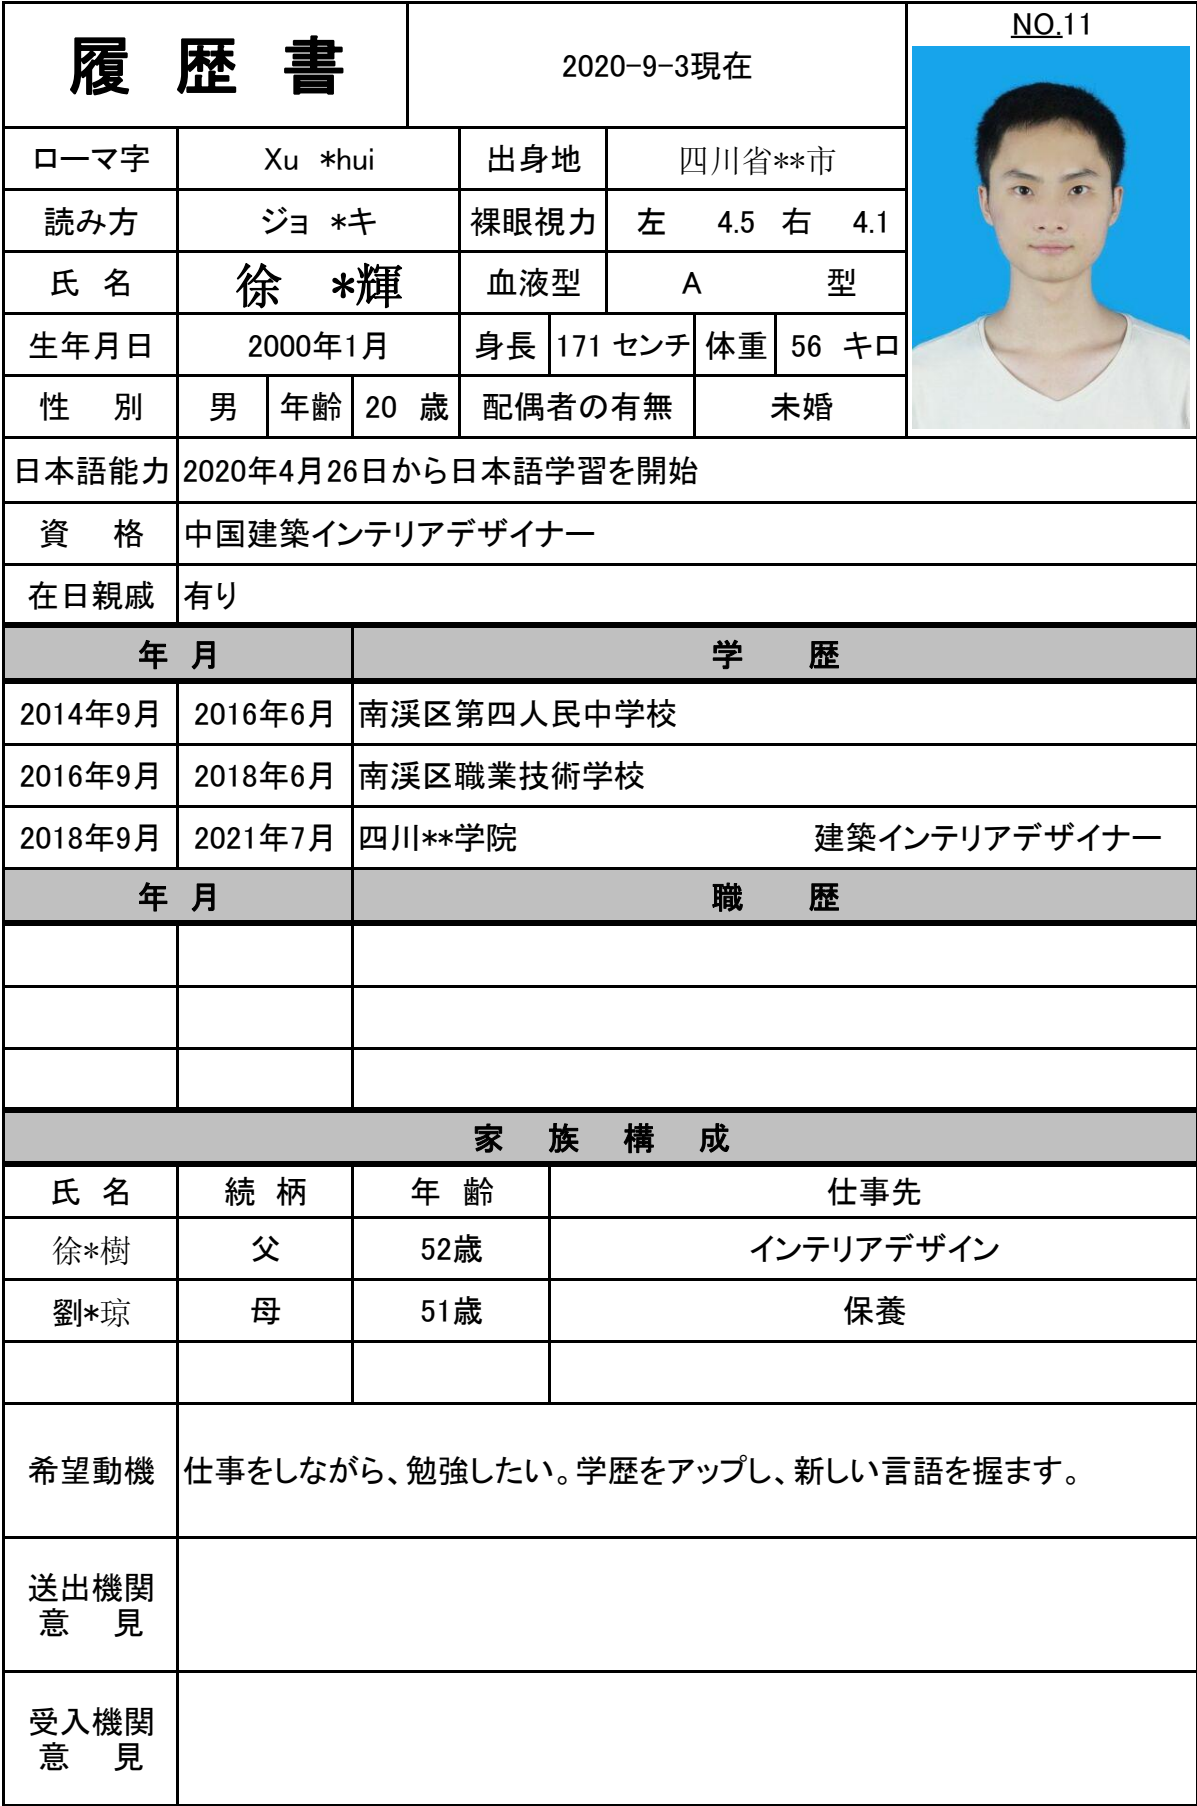 履 歴 書
2020-9-3現在
NO.11
ローマ字 Xu *hui 出身地 四川省**市
読み方 ジョ *キ 裸眼視力 左 4.5 右 4.1
氏 名 徐 *輝 血液型 A 型
生年月日 2000年1月 身長 171 センチ 体重 56 キロ
性 別 男 年齢 20 歳 配偶者の有無 未婚
日本語能力 2020年4月26日から日本語学習を開始
資 格 中国建築インテリアデザイナー
在日親戚 有り
年 月 学 歴
2014年9月 2016年6月 南溪区第四人民中学校
2016年9月 2018年6月 南溪区職業技術学校
2018年9月 2021年7月 四川**学院 建築インテリアデザイナー
年 月 職 歴
家 族 構 成
氏 名 続 柄 年 齢 仕事先
徐*樹 父 52歳 インテリアデザイン
劉*琼 母 51歳 保養
希望動機 仕事をしながら、勉強したい。学歴をアップし、新しい言語を握ます。
送出機関
意 見
受入機関
意 見